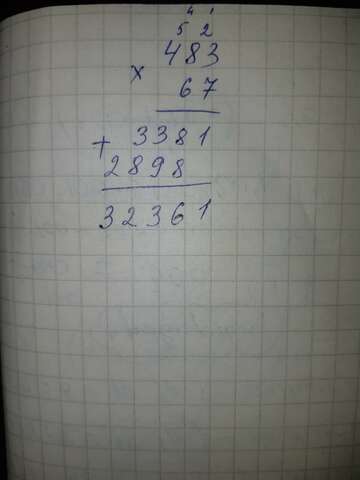 4 1
5 2
483
×
67
+ 3381
2898
32361